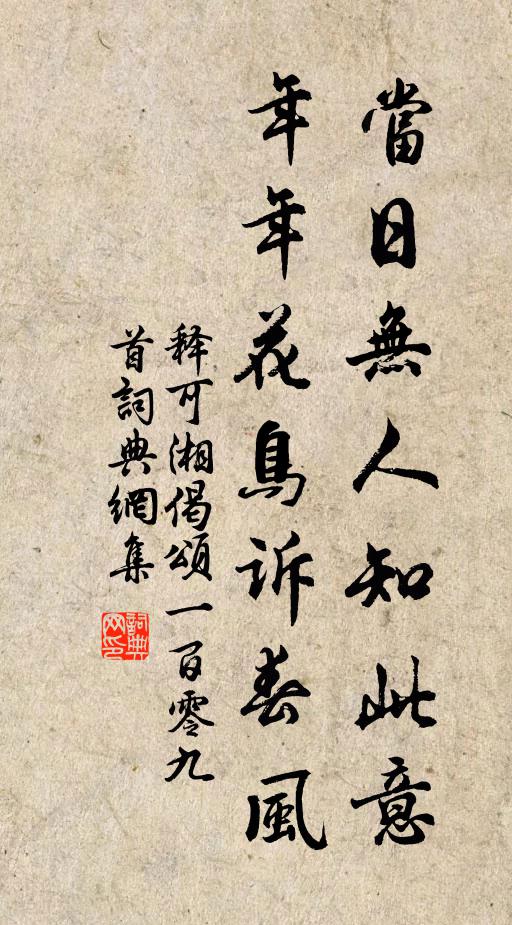 當日無人知此意
年年花鳥訴春風
释可湘偈頌一百零九
首詞典網集
詞典网印